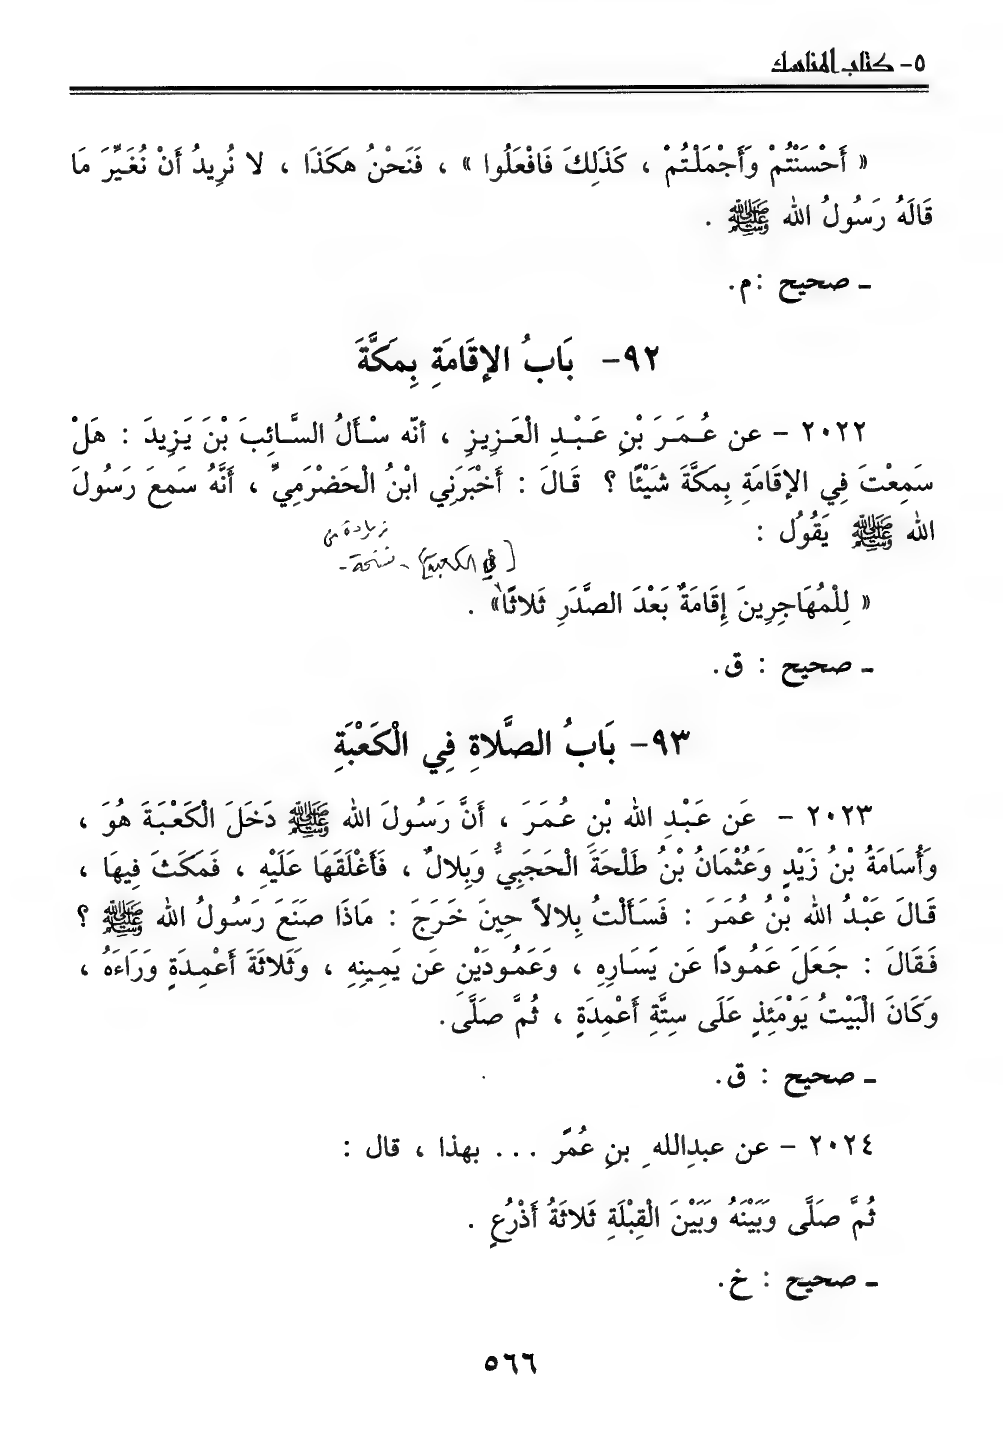 ٥- كتاب المناسك
« أَحْسَنْتُمْ وَأَجْمَلْتُمْ ، كَذَلِكَ فَافْعَلُوا » ، فَنَحْنُ هَكَذَا ، لا نُرِيدُ أَنْ نُغَيِّرَ مَا
قَالَهُ رَسُولُ الله ﷺ .
ـ صحيح :م.
٩٢- بَابُ الإقَامَةِ بِمَكَّةَ
٢٠٢٢ - عن عُمَرَ بْنِ عَبْدِ الْعَزِيزِ ، أنّه سْأَلُ السَّائِبَ بْنَ يَزِيدَ : هَلْ
سَمِعْتَ فِي الإقَامَةِ بِمَكَّةَ شَيْئًا ؟ قَالَ : أَخْبَرَنِي ابْنُ الْحَضْرَمِيِّ ، أَنَّهُ سَمِعَ رَسُولَ
الله ﷺ يَقُولُ :
زيادة من
[في الكعبة] - نسخة-
« لِلْمُهَاجِرِينَ إِقَامَةٌ بَعْدَ الصَّدَرِ ثَلاثًا» .
ـ صحيح : ق.
٩٣- بَابُ الصَّلاةِ فِي الْكَعْبَةِ
٢٠٢٣ - عَن عَبْدِ الله بْنِ عُمَرَ ، أَنَّ رَسُولَ الله ﷺ دَخَلَ الْكَعْبَةَ هُوَ ،
وَأُسَامَةُ بْنُ زَيْدٍ وَعُثْمَانُ بْنُ طَلْحَةَ الْحَجَبِيُّ وَبِلالٌ ، فَأَغْلَقَهَا عَلَيْهِ ، فَمَكَثَ فِيهَا ،
قَالَ عَبْدُ الله بْنُ عُمَرَ : فَسَأَلْتُ بِلالاً حِينَ خَرَجَ : مَاذَا صَنَعَ رَسُولُ الله ﷺ ؟
فَقَالَ : جَعَلَ عَمُودًا عَن يَسَارِهِ ، وَعَمُودَيْنِ عَن يَمِينِهِ ، وَثَلاثَةَ أَعْمِدَةٍ وَرَاءَهُ ،
وَكَانَ الْبَيْتُ يَوْمَئِذٍ عَلَى سِتَّةِ أَعْمِدَةٍ ، ثُمَّ صَلَّى.
ـ صحيح : ق.
٢٠٢٤ - عن عبدِالله ِ بنِ عُمَرَ ... بهذا ، قال :
ثُمَّ صَلَّى وَبَيْنَهُ وَبَيْنَ الْقِبْلَةِ ثَلاثَةُ أَذْرُعٍ .
ـ صحيح : خ.
٥٦٦